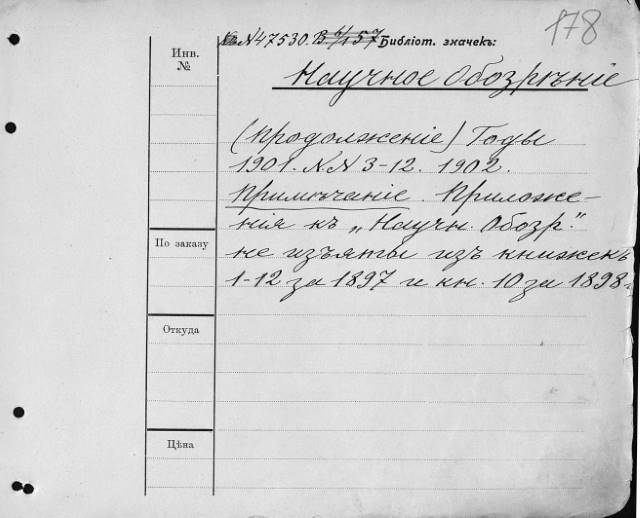 178
№ N 47530. В 6/1 57 Библіот. значекъ:
Инв.
№
Научное Обозрѣніе
(продолженіе) Годы
1901. N.N 3-12. 1902.
Примѣчаніе. Приложе-
нія къ „Научн. Обозр."
не изъяты изъ книжекъ
1-12 за 1897 и кн. 10 за 1898.
По заказу
Откуда
Цѣна